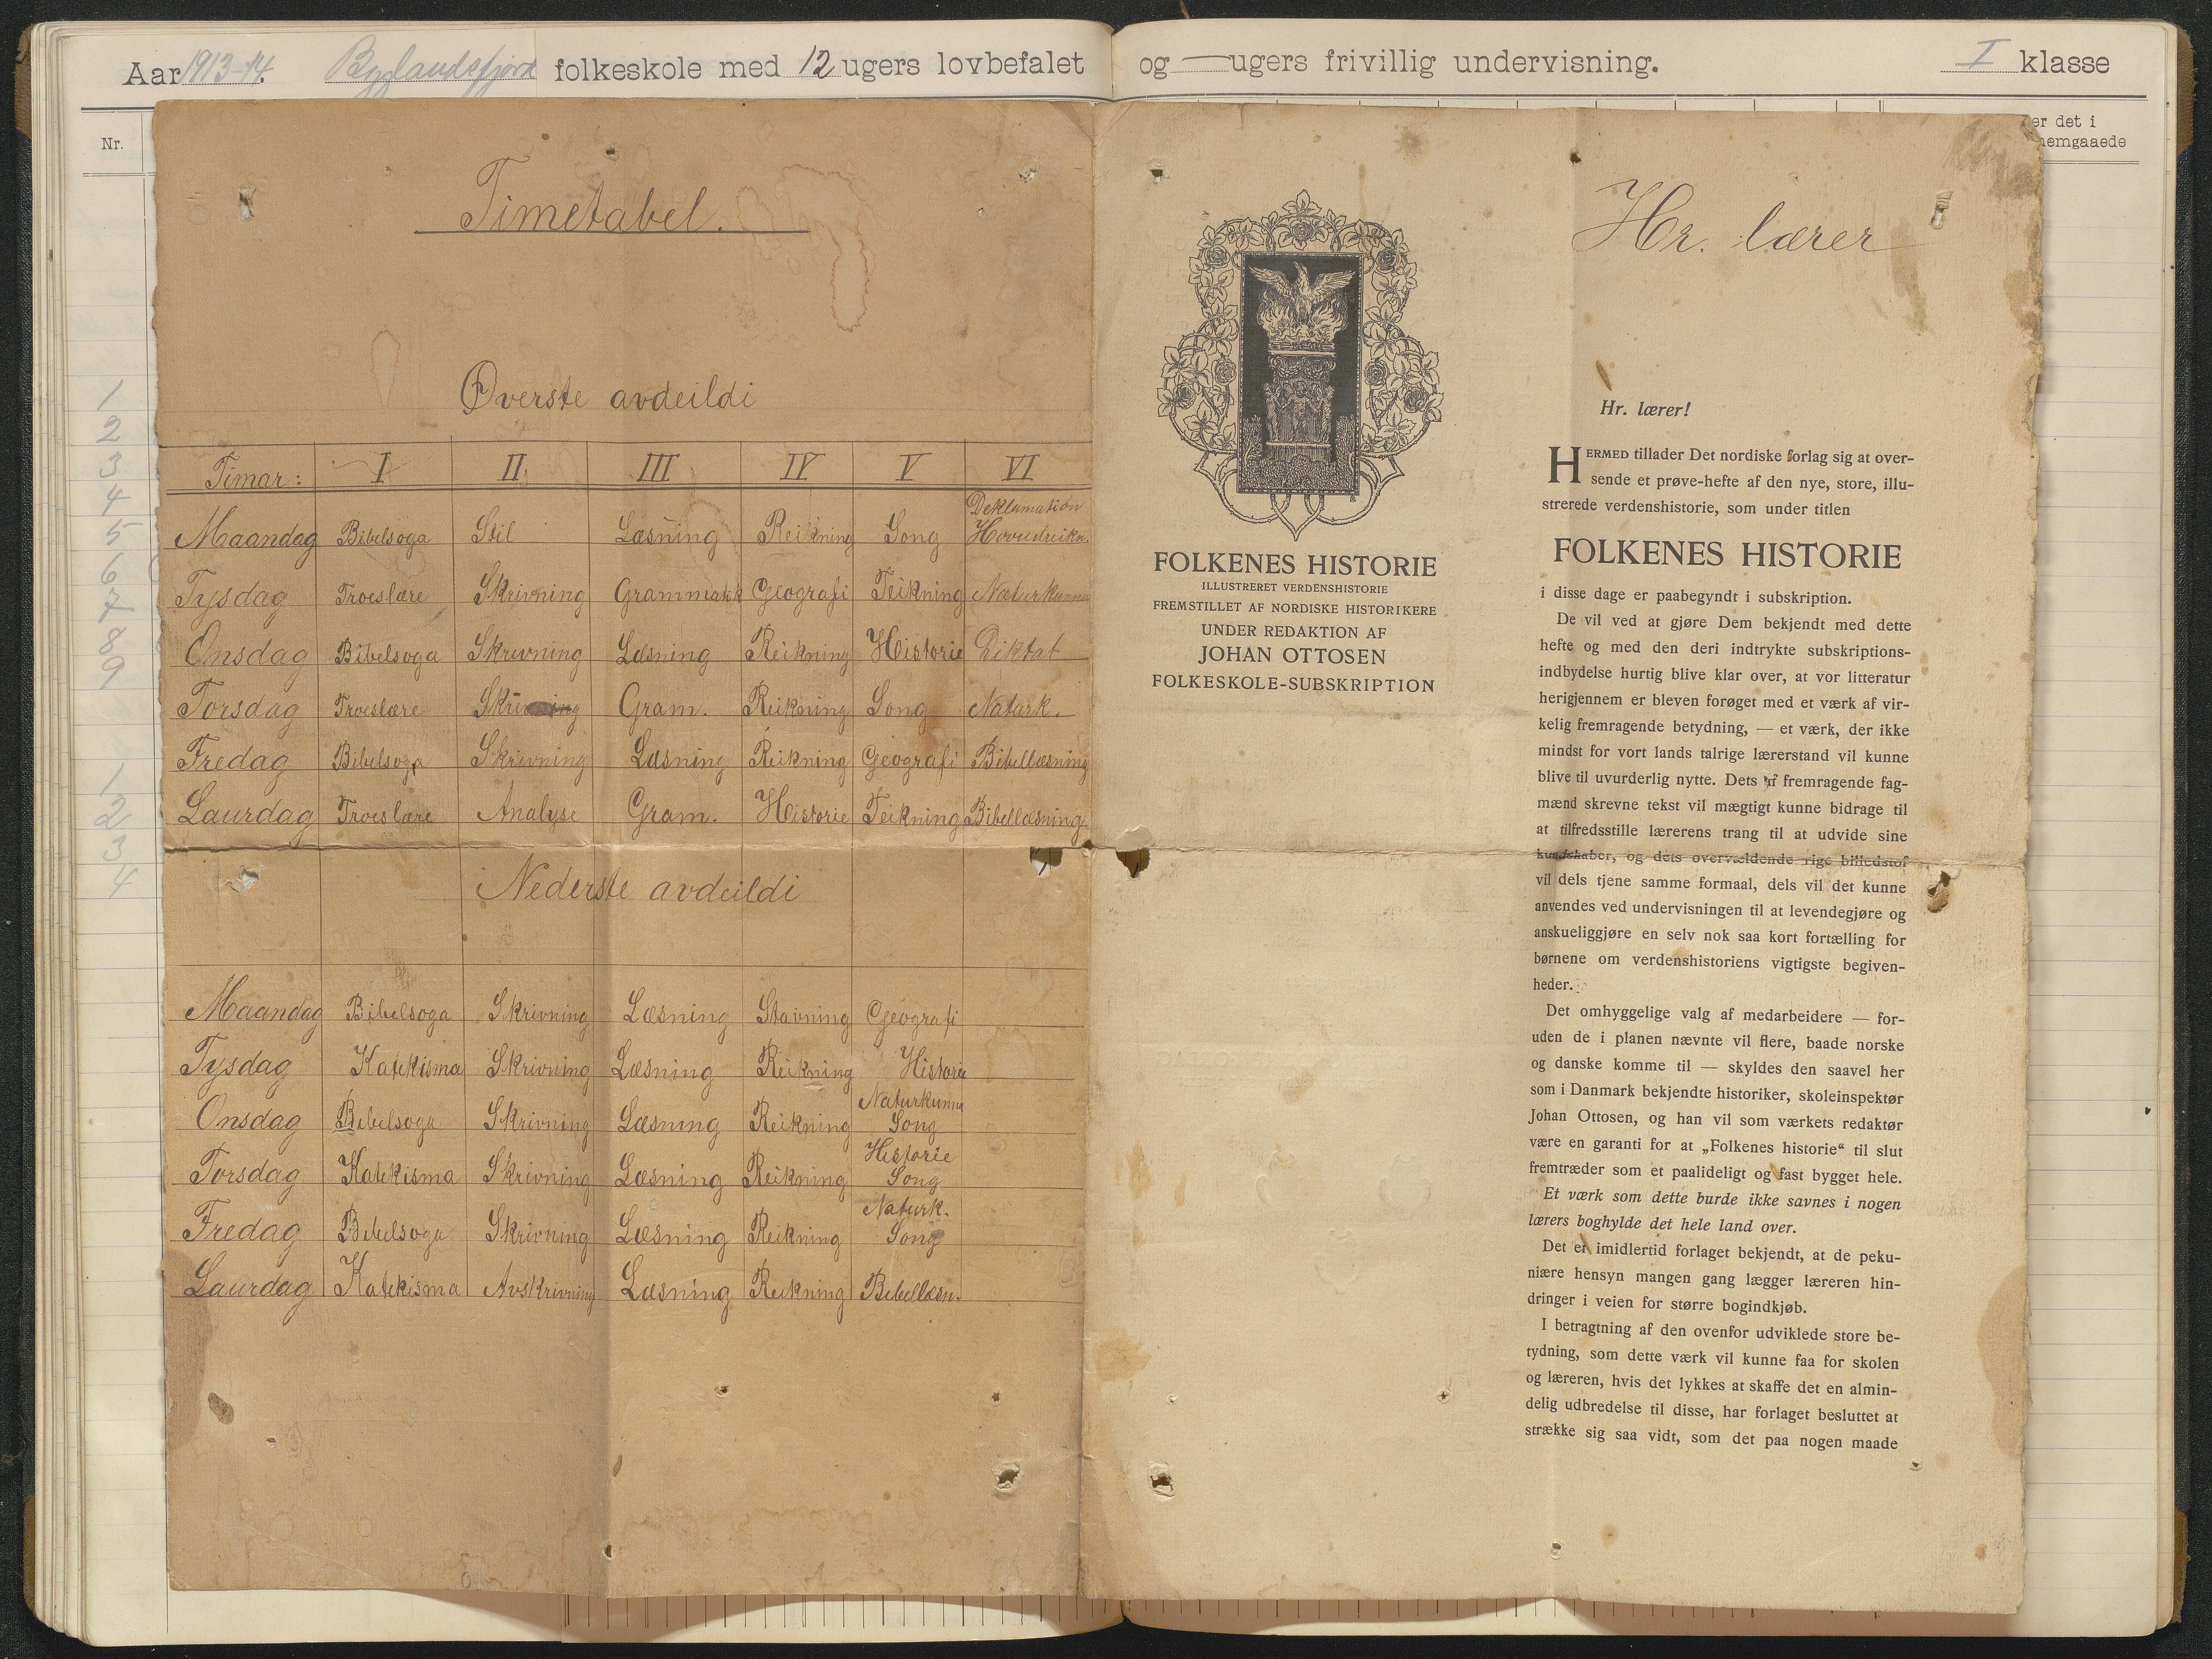 Aar 1913-14. Byglandsfjord folkeskole med 12 ugers lovbefalet og — ugers frivillig undervisning. I klasse
Nr.
er det i
nemgaaede
1
2
3
4
5
6
7
8
9
1
2
3
4
Timetabel.
Øverste avdeildi
Timar: I II III IV V VI
Maandag Bibelsoga Stil Læsning Reikning Song Deklamation Hovudreikn.
Tysdag Troeslære Skrivning Grammatik Geografi Teikning Naturkunna
Onsdag Bibelsoga Skrivning Læsning Reikning Historie Diktat
Torsdag Troeslære Skrivning Gram. Reikning Song Naturk.
Fredag Bibelsoga Skrivning Læsning Reikning Geografi Bibellæsning
Laurdag Troeslære Analyse Gram. Historie Teikning Bibellæsning
Nederste avdeildi
Maandag Bibelsoga Skrivning Læsning Stavning Geografi
Tysdag Katekisma Skrivning Læsning Reikning Historie
Onsdag Bibelsoga Skrivning Læsning Reikning Naturkunna Song
Torsdag Katekisma Skrivning Læsning Reikning Historie Song
Fredag Bibelsoga Skrivning Læsning Reikning Naturk. Song
Laurdag Katekisma Avskrivning Læsning Reikning Bibellæsn.
FOLKENES HISTORIE
ILLUSTRERET VERDENSHISTORIE
FREMSTILLET AF NORDISKE HISTORIKERE
UNDER REDAKTION AF
JOHAN OTTOSEN
FOLKESKOLE-SUBSKRIPTION
Hr. lærer
Hr. lærer!
HERMED tillader Det nordiske forlag sig at over-
sende et prøve-hefte af den nye, store, illu-
strerede verdenshistorie, som under titlen
FOLKENES HISTORIE
i disse dage er paabegyndt i subskription.
De vil ved at gjøre Dem bekjendt med dette
hefte og med den deri indtrykte subskriptions-
indbydelse hurtig blive klar over, at vor litteratur
herigjennem er bleven forøget med et værk af vir-
kelig fremragende betydning, — et værk, der ikke
mindst for vort lands talrige lærerstand vil kunne
blive til uvurderlig nytte. Dets af fremragende fag-
mænd skrevne tekst vil mægtigt kunne bidrage til
at tilfredsstille lærerens trang til at udvide sine
kundskaber, og dets overvældende rige billedstof
vil dels tjene samme formaal, dels vil det kunne
anvendes ved undervisningen til at levendegjøre og
anskueliggjøre en selv nok saa kort fortælling for
børnene om verdenshistoriens vigtigste begiven-
heder.
Det omhyggelige valg af medarbeidere — for-
uden de i planen nævnte vil flere, baade norske
og danske komme til — skyldes den saavel her
som i Danmark bekjendte historiker, skoleinspektør
Johan Ottosen, og han vil som værkets redaktør
være en garanti for at „Folkenes historie“ til slut
fremtræder som et paalideligt og fast bygget hele.
Et værk som dette burde ikke savnes i nogen
lærers boghylde det hele land over.
Det er imidlertid forlaget bekjendt, at de peku-
niære hensyn mangen gang lægger læreren hin-
dringer i veien for større bogindkjøb.
I betragtning af den ovenfor udviklede store be-
tydning, som dette værk vil kunne faa for skolen
og læreren, hvis det lykkes at skaffe det en almin-
delig udbredelse til disse, har forlaget besluttet at
strække sig saa vidt, som det paa nogen maade